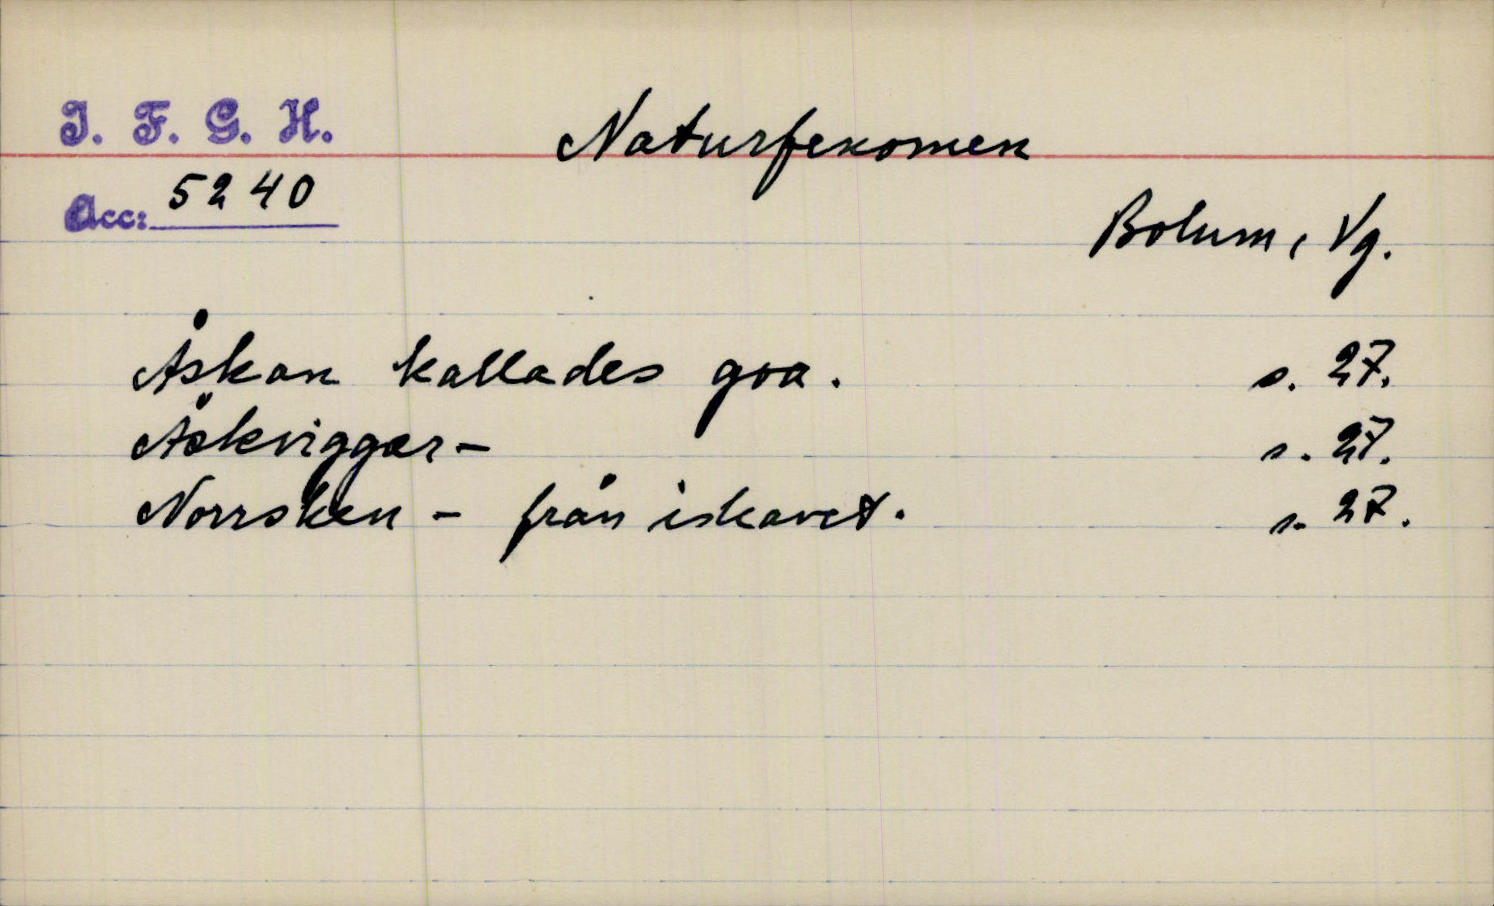 I. F. G. H.
Naturfenomen
Acc: 5240
Bolum, Vg.
Åskan kallades goa. s. 27.
Åskviggar - s. 27.
Norrsken - från ishavet. s. 27.